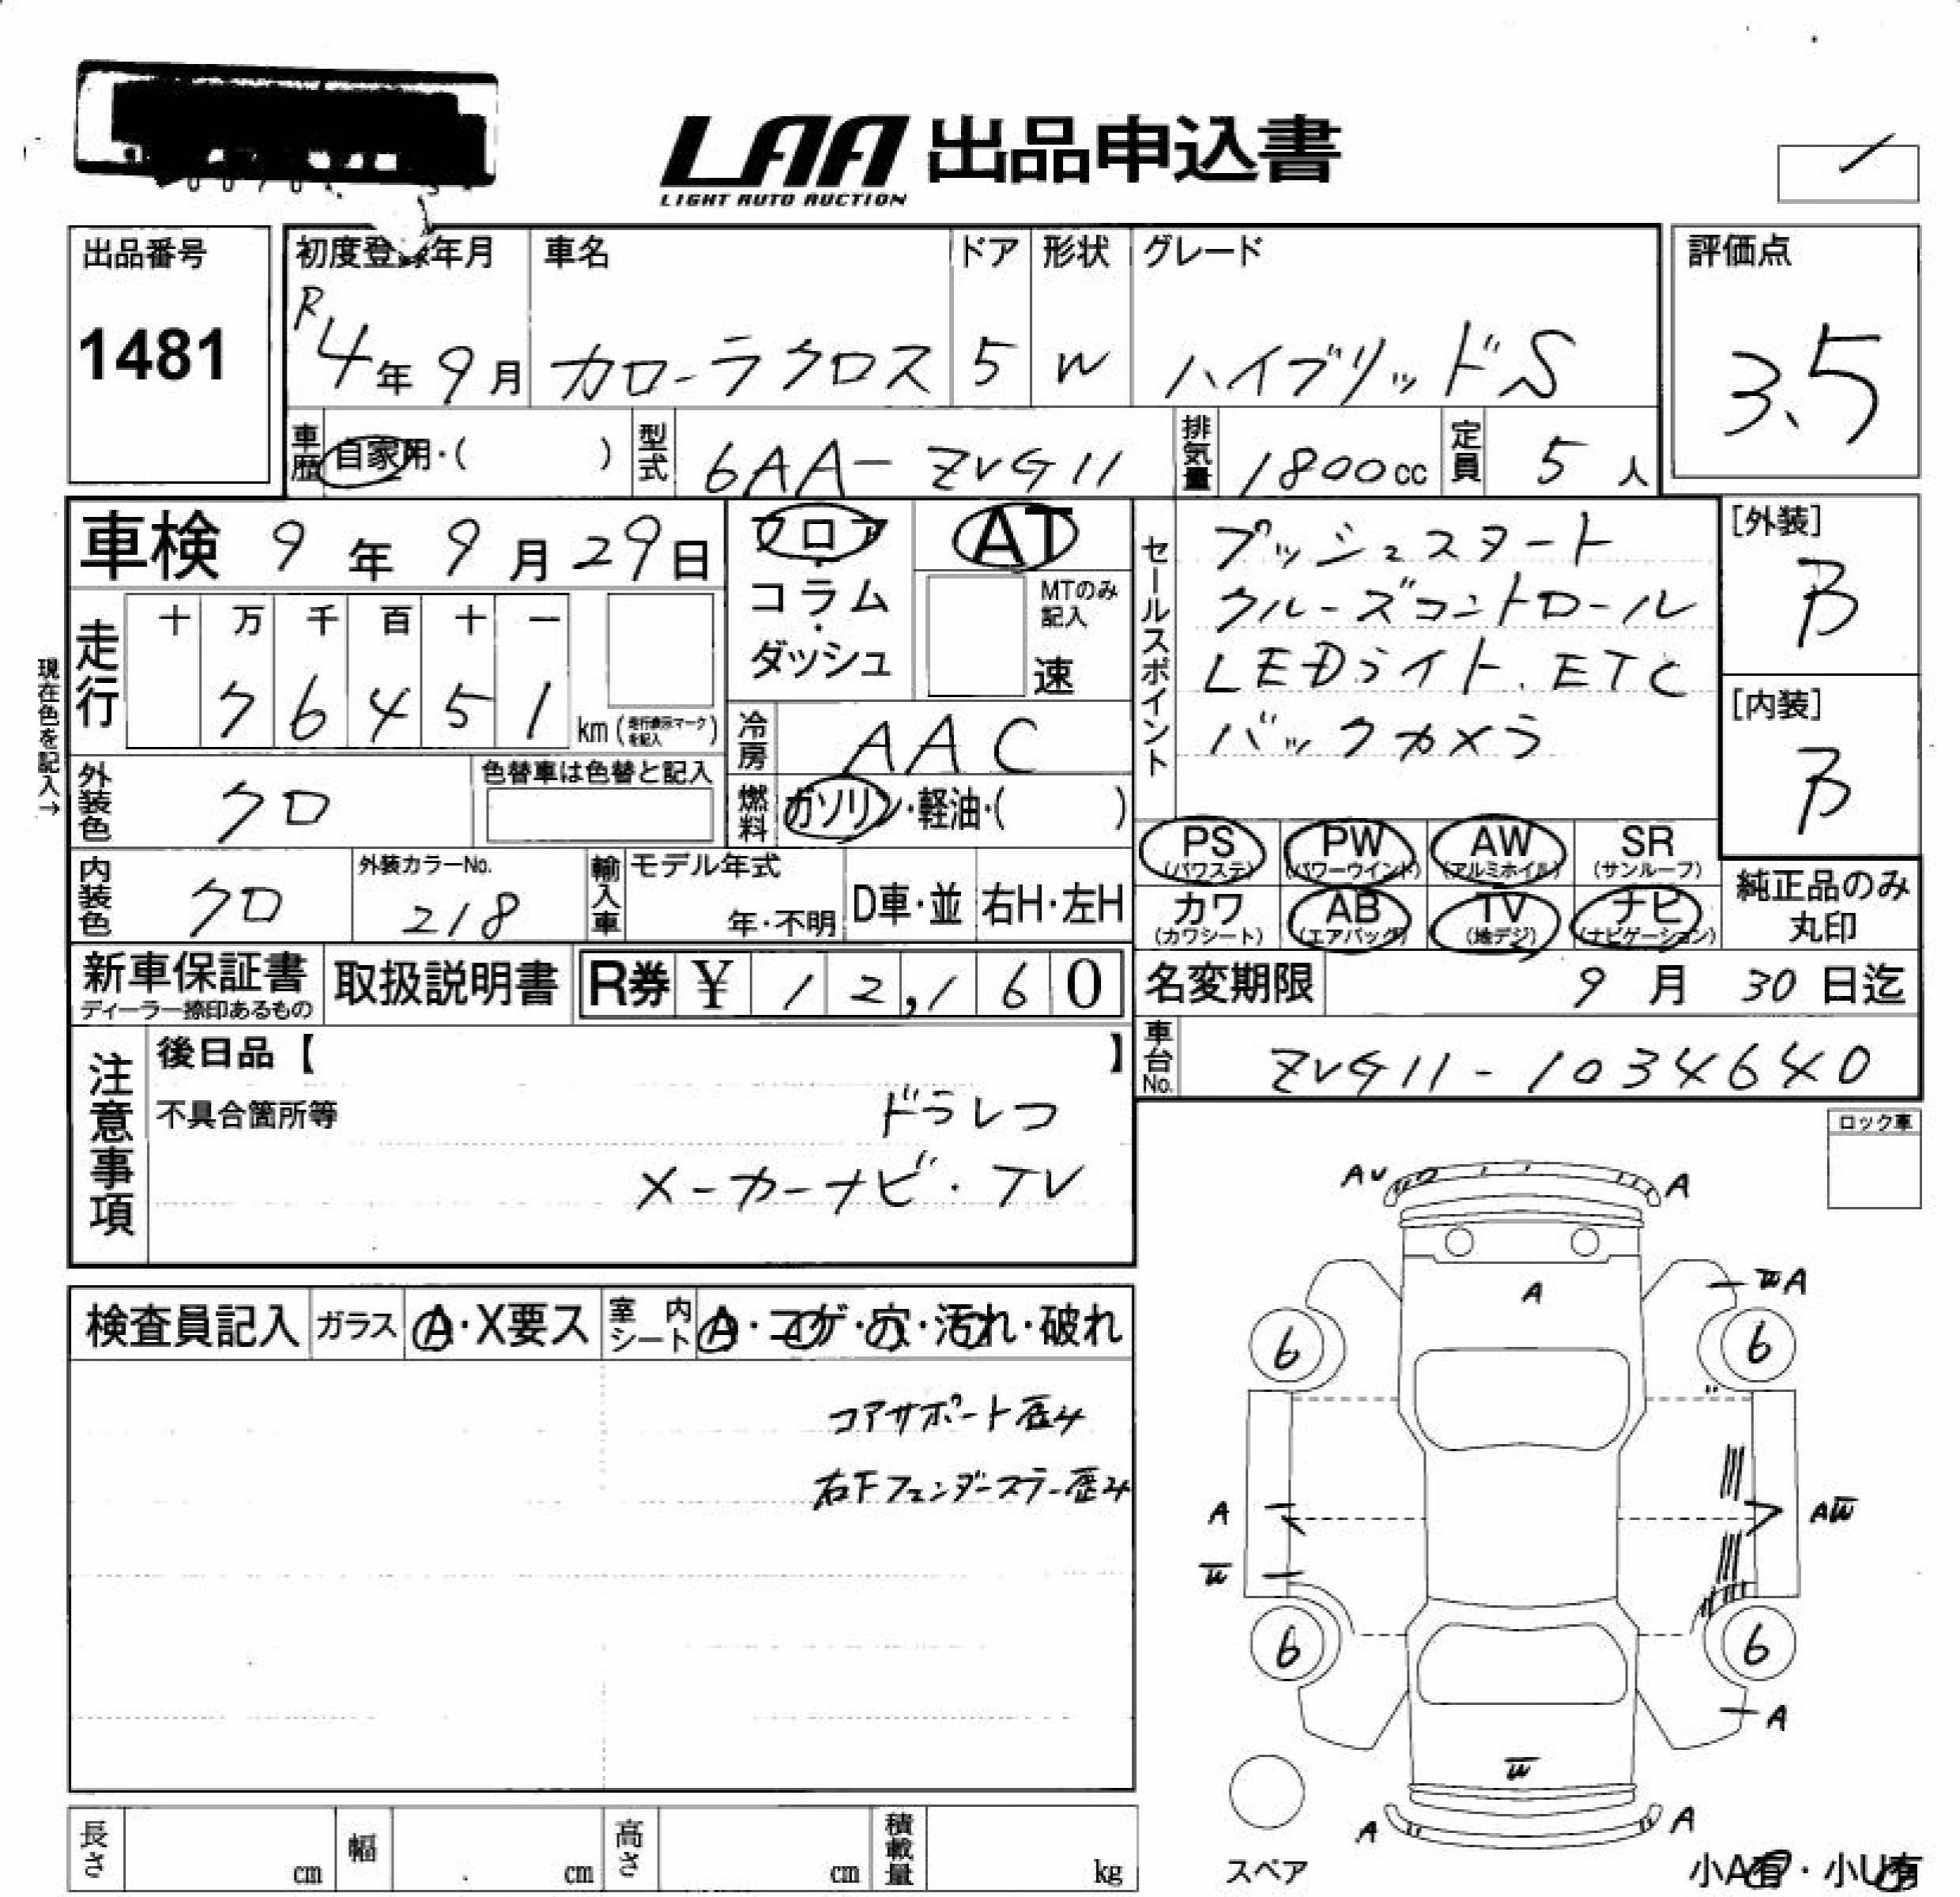 LAA 出品申込書
LIGHT AUTO AUCTION
出品番号
1481
初度登録年月 車名 ドア 形状 グレード
R4年 9月 カローラクロス 5 W ハイブリッドS
評価点
3.5
車歴 自家用・( ) 型式 6AA-ZVG11 排気量 1800cc 定員 5人
車検 9年 9月 29日
フロア・コラム・ダッシュ
AT
MTのみ記入
速
走行 十 万 千 百 十 一
7 6 4 5 1 km (走行表示マークを記入)
現在色を記入→
冷房 AAC
燃料 ガソリン・軽油・( )
外装色 クロ
色替車は色替と記入
内装色 クロ
外装カラーNo. 218
輸入車 モデル年式 年・不明 D車・並 右H・左H
セールスポイント
プッシュスタート
クルーズコントロール
LEDライト.ETC
バックカメラ
[外装]
B
[内装]
B
PS (パワステ) PW (パワーウインド) AW (アルミホイル) SR (サンルーフ)
カワ (カワシート) AB (エアバッグ) TV (地デジ) ナビ (ナビゲーション)
純正品のみ丸印
新車保証書
ディーラー捺印あるもの
取扱説明書
R券 ¥ 12,160
名変期限 9月 30日迄
車台No. ZVG11-1034640
注意事項
後日品【 】
不具合箇所等
ドラレコ
メーカーナビ・TV
ロック車
検査員記入 ガラス A・X要ス 室内シート A・コゲ・穴・汚れ・破れ
コアサポート歪み
右Fフェンダーステー歪み
AU A
A
WA
6 6
A AW
W
6 6
A
W
A A
スペア
小A有・小U有
長さ cm 幅 cm 高さ cm 積載量 kg